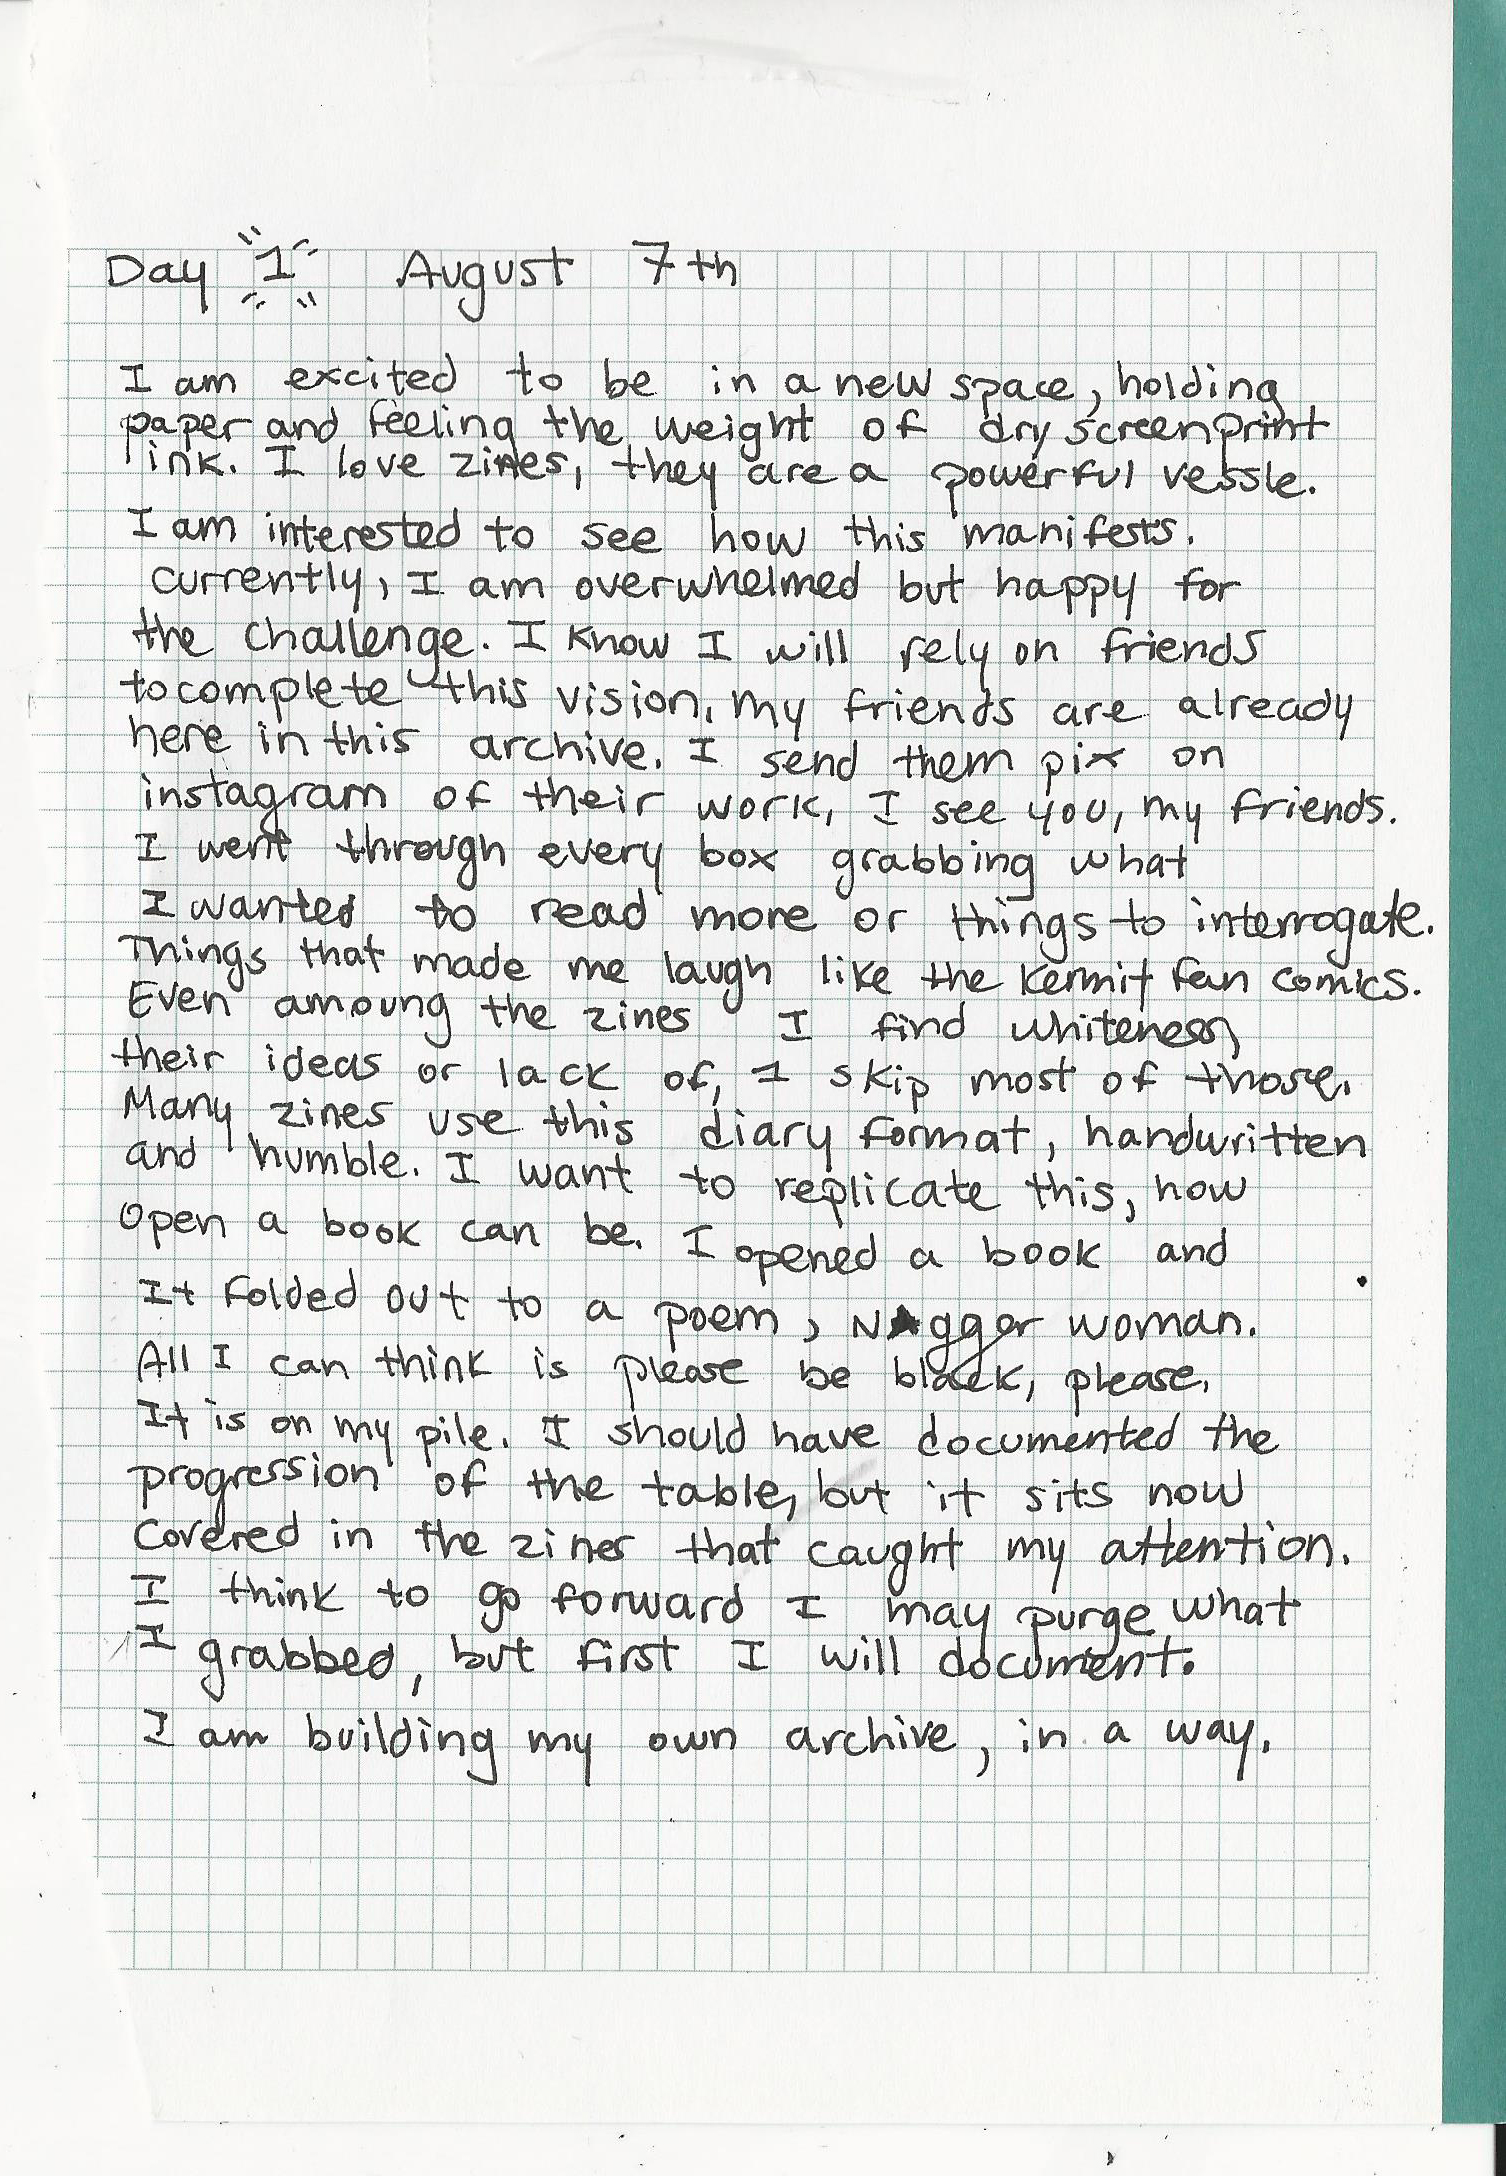 Day 1 August 7th
I am excited to be in a new space, holding
paper and feeling the weight of dry screenprint
ink. I love zines, they are a powerful vessle.
I am interested to see how this manifests.
currently, I am overwhelmed but happy for
the challenge. I know I will rely on friends
to complete this vision, my friends are already
here in this archive. I send them pix on
instagram of their work, I see you, my friends.
I went through every box grabbing what
I wanted to read more or things to interrogate.
Things that made me laugh like the Kermit fan comics.
Even amoung the zines I find whiteness,
their ideas or lack of, I skip most of those.
Many zines use this diary format, handwritten
and humble. I want to replicate this, how
open a book can be. I opened a book and
It folded out to a poem, woman.
All I can think is please be black, please.
It is on my pile. I should have documented the
progression of the table, but it sits now
covered in the zines that caught my attention.
I think to go forward I may purge what
I grabbed, but first I will document.
I am building my own archive, in a way.